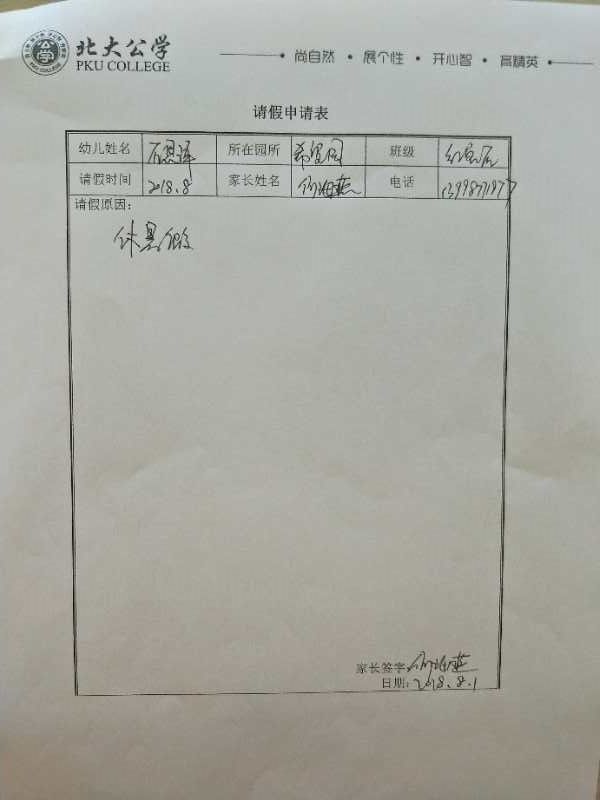 北大公学
PKU COLLEGE
尚自然 • 展个性 • 开心智 • 高精英
请假申请表
幼儿姓名 石思译 所在园所 希望园 班级
请假时间 2018.8 家长姓名 何海燕 电话
请假原因:
休暑假
家长签字 何海燕
日期: 2018.8.1